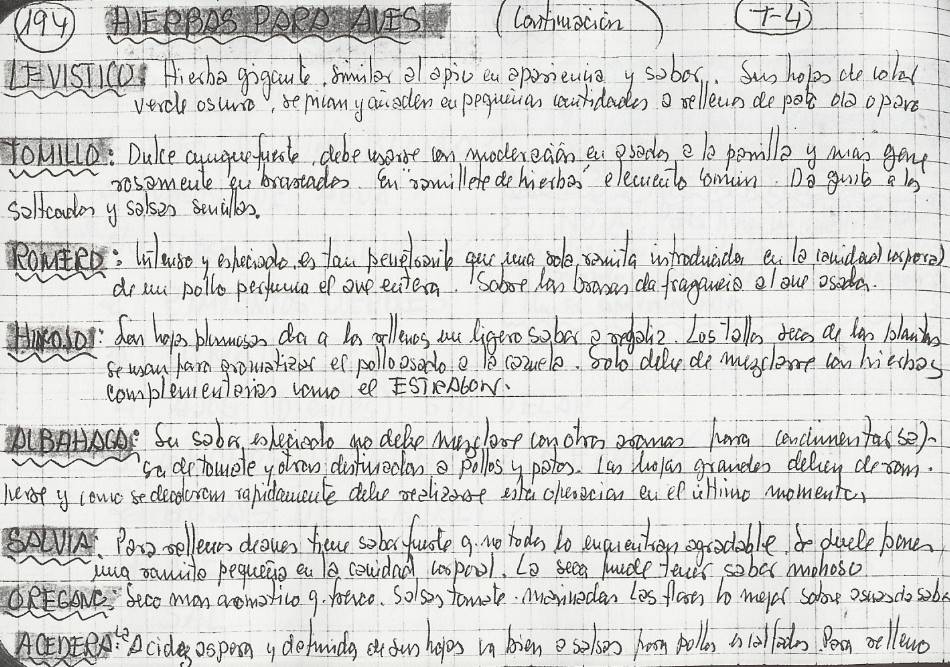 194 HIERBAS PARA AVES (Continuación) T-4
LEVISTICO: Hierba gigante, similar al apio en apariencia y sabor. Sus hojas de color
verde oscuro, se pican y añaden en pequeñas cantidades a rellenos de pato oca o pavo
TOMILLO: Dulce aunque fuerte, debe usarse con moderación en asados a la parrilla y más gene
rosamente en braseados. En "ramillete de hierbas" elemento común. Da gusto a los
salteados y salsas sencillas.
ROMERO: Intenso y especiado, es tan penetrante que una sola ramita introducida en la cavidad corporal
de un pollo perfuma el ave entera. Sobre las brasas da fragancia al ave asada.
HINOJO: Las hojas plumosas da a los rellenos un ligero sabor a regaliz. Los tallos secos de las plantas
se usan para aromatizar el pollo asado a la cazuela. Solo debe de mezclarse con hierbas
complementarias como el ESTRAGON.
ALBAHACA: Su sabor especiado no debe mezclarse con otros aromas para condimentar sal-
sa de tomate y otras destinadas a pollos y patos. Las hojas grandes deben de rom-
perse y como se decoloran rapidamente debe realizarse esta operación en el último momento.
SALVIA: Para rellenos de aves tiene sabor fuerte q. no todos lo encuentran agradable. Se puede poner
una ramita pequeña en la cavidad corporal. La seca puede tener sabor mohoso
OREGANO: Seco mas aromatico q. fresco. Salsas tomate. marinadas Las flores lo mejor sobre asado
ACEDERA: La Acidez aspera y definida de sus hojas va bien a salsas para pollos escalfados. Para relleno